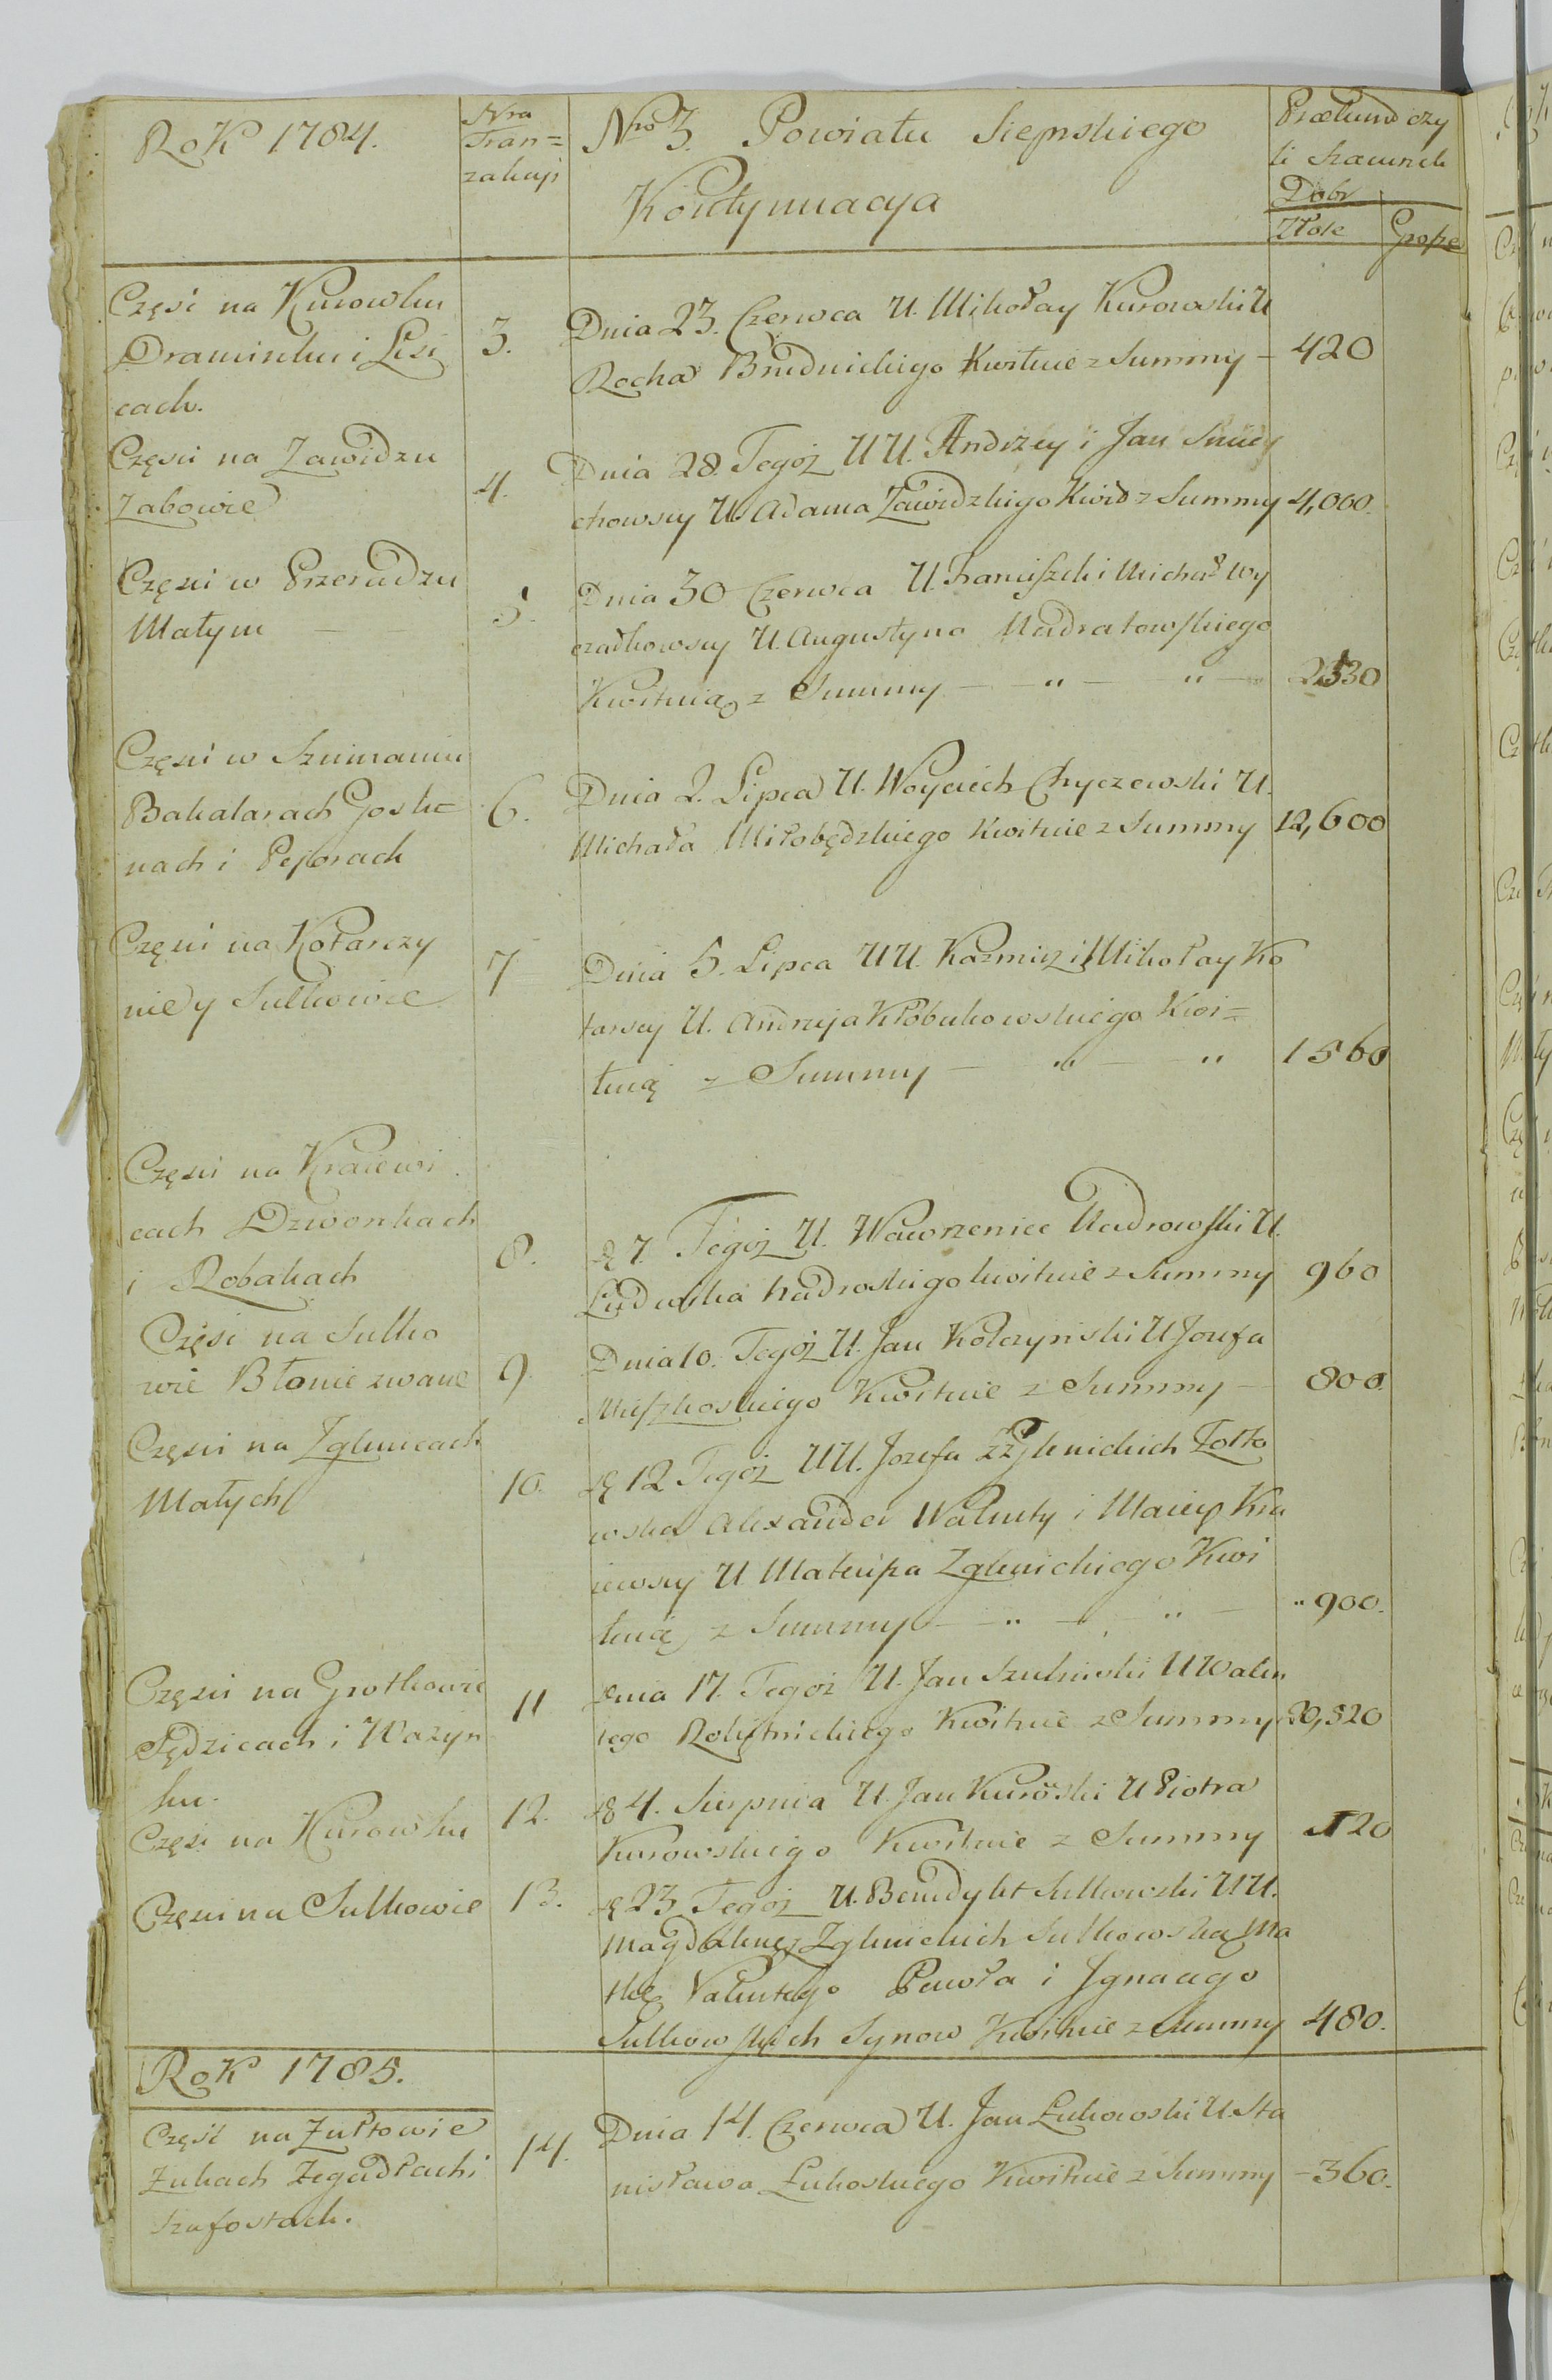 Rok 1784.
Nra
Tran=
zakcyi
Nro 3. Powiatu Sierpskiego
Kontynuacya
Szacunek
Dobr
Złote Grosze
Częsci na Kurowku
Draminku i Lisi
cach.
3.
Dnia 23. Czerwca U. Mikołay Kurowski U
Rocha Brudnickiego Kwituie z Summy – 420
Częsci na Zawidzu
Zabowie
4.
Dnia 28. Tegoż UU. Andrzey i Jan
chowscy U. Adama Zawidzkiego Kwit z Summy 4,000.
Częsci w Przeradzu
Małym —
5.
Dnia 30 Czerwca U. Franciszek i Michał Wy
czałkowscy U. Augustyna Nadratowskiego
Kwituią z Summy — " — " —
Częsci w Szumaniu
Bakalarach Gosku=
nach i Pejorach
6.
Dnia 2. Lipca U. Woyciech Chyczewski U.
Michała Miłobędzkiego Kwituie z Summy 12,600
Częsci na Kotarczy
nie y Sulkowie
7
Dnia 5. Lipca UU. Kazmirz i Mikołay Ko
tarscy U. Andrzeja Kłobukowskiego Kwi=
tuią z Summy — " — " 1560
Częsci na Kraiewi
cach Dzwonkach
i Robakach
8.
d 7. Tegoż U. Wawrzeniec Nadrowski U.
Ludwika Nadroskigo kwituie z Summy 960
Częsci na Sulko
wie Błonie zwane
9.
Dnia 10. Tegoż U. Jan Kolczynski U Jozefa
Myszkoskiego Kwituie z Summy – 800.
Częsci na Zglenicach
Małych
10.
d 12 Tegoż UU. Jozefa z Zglenickich Żołto
wska Alexander Walenty i Maciey Kra
iewscy U. Mateusza Zglenickiego Kwi
tuią z Summy — " — " — " 900.
Częsci na Grotkowie
Sędzicach i Ważyn
ku.
11
dnia 17. Tegoż U. Jan Szulmiski U Walen
tego Rokitnickiego Kwituie z Summy
Częsci na Kurowku
12.
d 4. Sierpnia U. Jan Kuroski U Piotra
Kurowskiego Kwituie z Summy
Częsci na Sulkowie
13.
d 23 Tegoż U. Benedykt Sulkowski UU.
Magdalenę z Zglenickich Sulkowską Ma
tkę Valentego Pawła i Jgnacego
Sulkowskich Synow Kwituie z Summy 480.
Rok 1785.
Częsć na Żułtowie
Żukach Zegadłach i
Szafostach.
14.
Dnia 14. Czerwca U. Jan Łukowski U. Sta
nisława Łukoskiego Kwituie z Summy – 360.